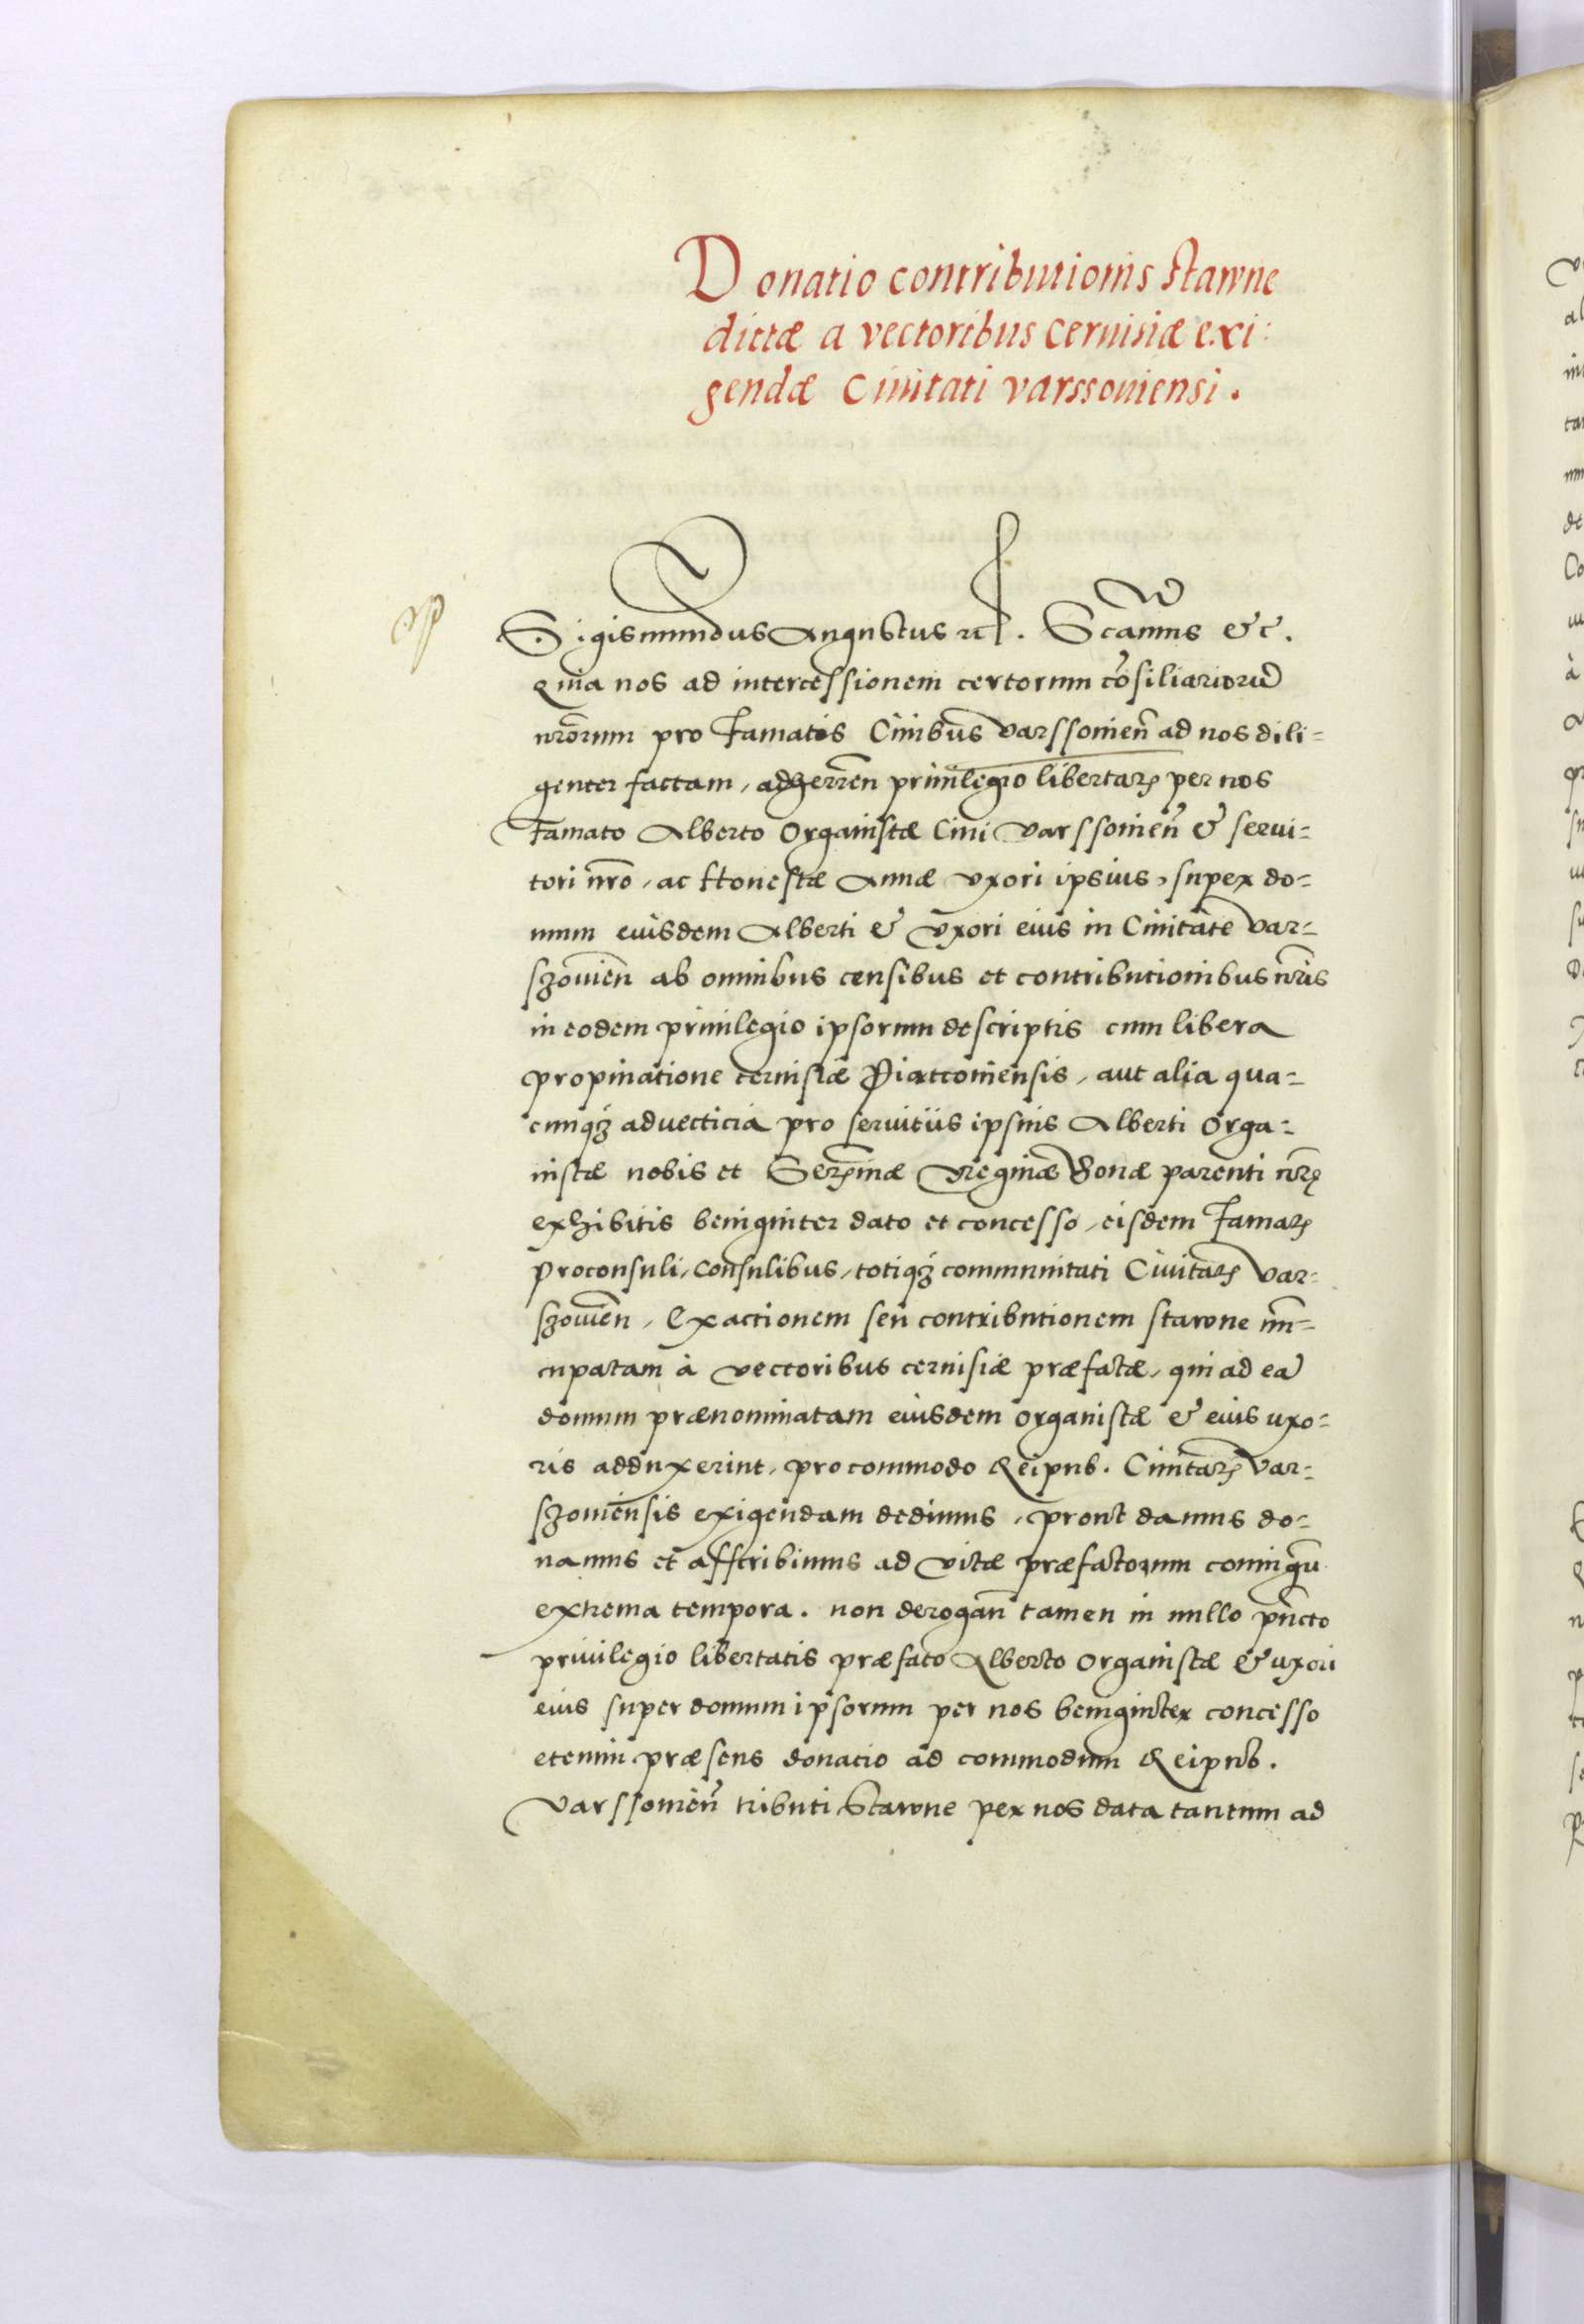 Donatio contributionis stawne
dictæ a vectoribus cervisiæ exi:
gendæ Civitati varssoviensi.
Sigismundus Augustus rc. Scamus etc.
Quia nos ad intercessionem certorum cōsiliariorū
nr̄orum pro Famatis Civibus varssovien̄ ad nos dili=
genter factam, adherren̄ privilegio libertatꝭ per nos
Famato Alberto Organistæ Civi varssovien̄ & servi=
tori nr̄o, ac Honestæ Annæ uxori ipsius, super do=
mum eiusdem Alberti & uxori eius in Civitate var=
szovien̄ ab omnibus censibus et contributionibus nr̄is
in eodem privilegio ipsorum descriptis cum libera
propinatione cervisiæ Piattoviensis, aut alia qua=
cunqꝫ advecticia pro servitiis ipsius Alberti Orga=
nistæ nobis et Serꝭmæ Reginæ Bonæ parenti nr̄ę
exhibitis benigniter dato et concesso, eisdem Famatꝭ
Proconsuli, Consulibus, totiqꝫ communitati Civitatꝭ var=
szovien̄, Exactionem seu contributionem stawne nn̄=
cupatam à vectoribus cervisiæ præfatæ, qui ad eā
domum prænominatam eiusdem organistæ & eius uxo=
ris adduxerint, pro commodo Reipub. Civitatꝭ var=
szoviensis exigendam dedimus, prout damus do=
namus et asscribimus ad vitæ præfatorum coniugū
extrema tempora. non derogan̄ tamen in nullo pūncto
privilegio libertatis præfato Alberto Organistæ & uxori
eius super domum ipsorum per nos benigniter concesso
etenim præsens donatio ad commodum Reipub.
varssovien̄ tributi Stawne per nos data tantum ad